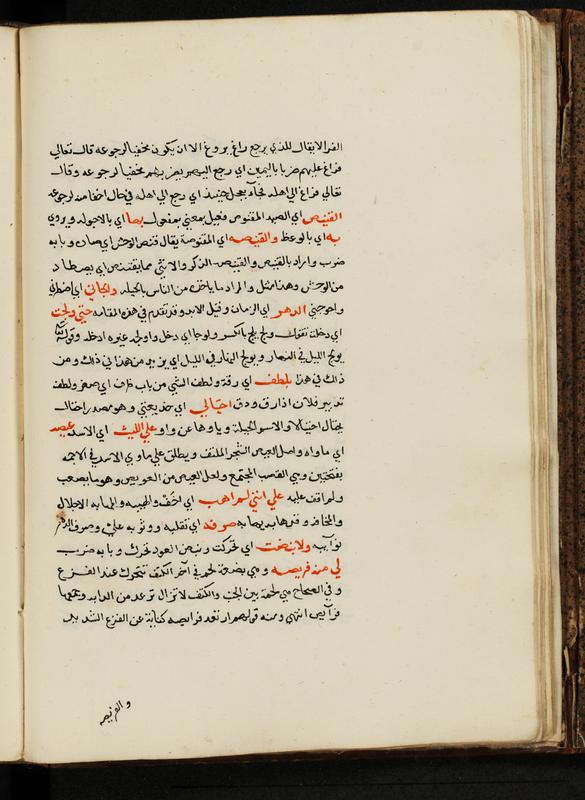 الفرا لا يقال للذي يرجع راغ يروغ الا ان يكون مخفيا لرجوعه قال تعالي
فراغ عليهم ضربا باليمين اي رجع اليهم يضربهم مخفيا لرجوعه وقال
تعالي فراغ الي اهله فجآ بعجل حينيذ اي رجع الي اهله في حال اخفا منه لرجوعه
القنيص اي الصيد المقنوص فعيل بمعني مفعول بها اي بالاحبولة ويروي
به اي بالوعظ والقنيصه اي المقنوصة يقال قنص الوحش اي صاد وبابه
ضرب واراد بالقنيص والقنيصة الذكر والانثي مما يقتنص اي يصطاد
من الوحش وهذا مثل والمراد ما ياخذ من الناس بالحيلة والجاني اي اضطرني
واحوجني الدهر اي الزمان وقيل الابد وقد تقدم في هذه المقامه حتي ولجت
اي دخلت تقول ولج يلج بالكسر ولوجا اي دخل واولجه غيره ادخله وقوله تعالي
يولج الليل في النهار ويولج النهار في الليل اي يزيد من هذا في ذاك ومن
ذاك في هذا بلطف اي رقة ولطف الشي من باب ظرف اي صغر ولطف
تدبير فلان اذا رق ودق احتيالي اي خديعتي وهو مصدر احتال
يحتال احتيالا والاسم الحيلة وياوها عن واو علي الليث اي الاسد عيصه
اي ماواه واصل العيص الشجر الملتف ويطلق علي ماوي الاسد في الاجمه
بفتحتين وهي القصب المجتمع ولعل العيص من العويص وهو ما يصعب
ولم اقف عليه علي انني لم اهب اي اخَف والهيبه والمهابه الاجلال
والمخافة وقد هابه يهابه صرفه اي تقلبه ونوبه علي وصروف الدهر
نوآيبه ولا نبضت اي تحركت ونبض العود تحرك وبابه ضرب
لي منه فريصه وهي بضعة لحم في آخر الكتف تتحرك عند الفزع
وفي الصحاح هي لحمة بين الجنب والكتف لا تزال ترعد من الدابه وجمعها
فرآيص انتهي ومنه قولهم ارتعد فرايصه كناية عن الفزع الشديد
والفريصه